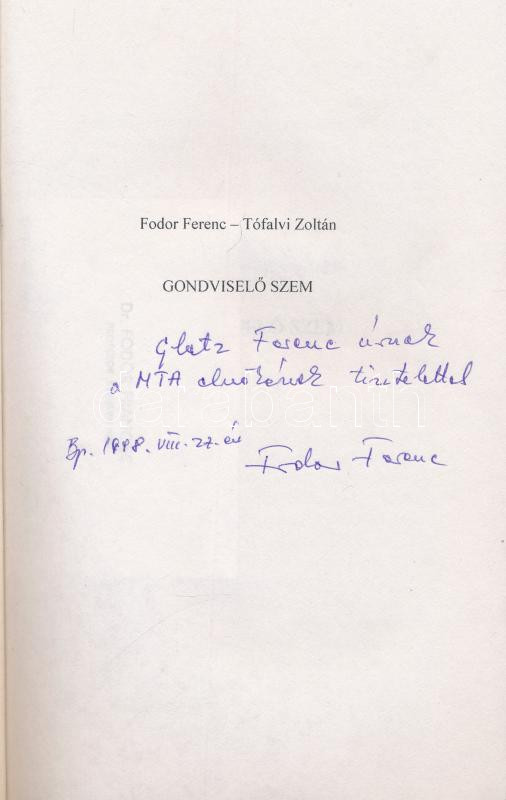 Fodor Ferenc – Tófalvi Zoltán
GONDVISELŐ SZEM
Glatz Ferenc úrnak
a MTA elnökének tisztelettel
Bp. 1998. VIII. 27-én
Fodor Ferenc
darabanth
Dr. FODOR